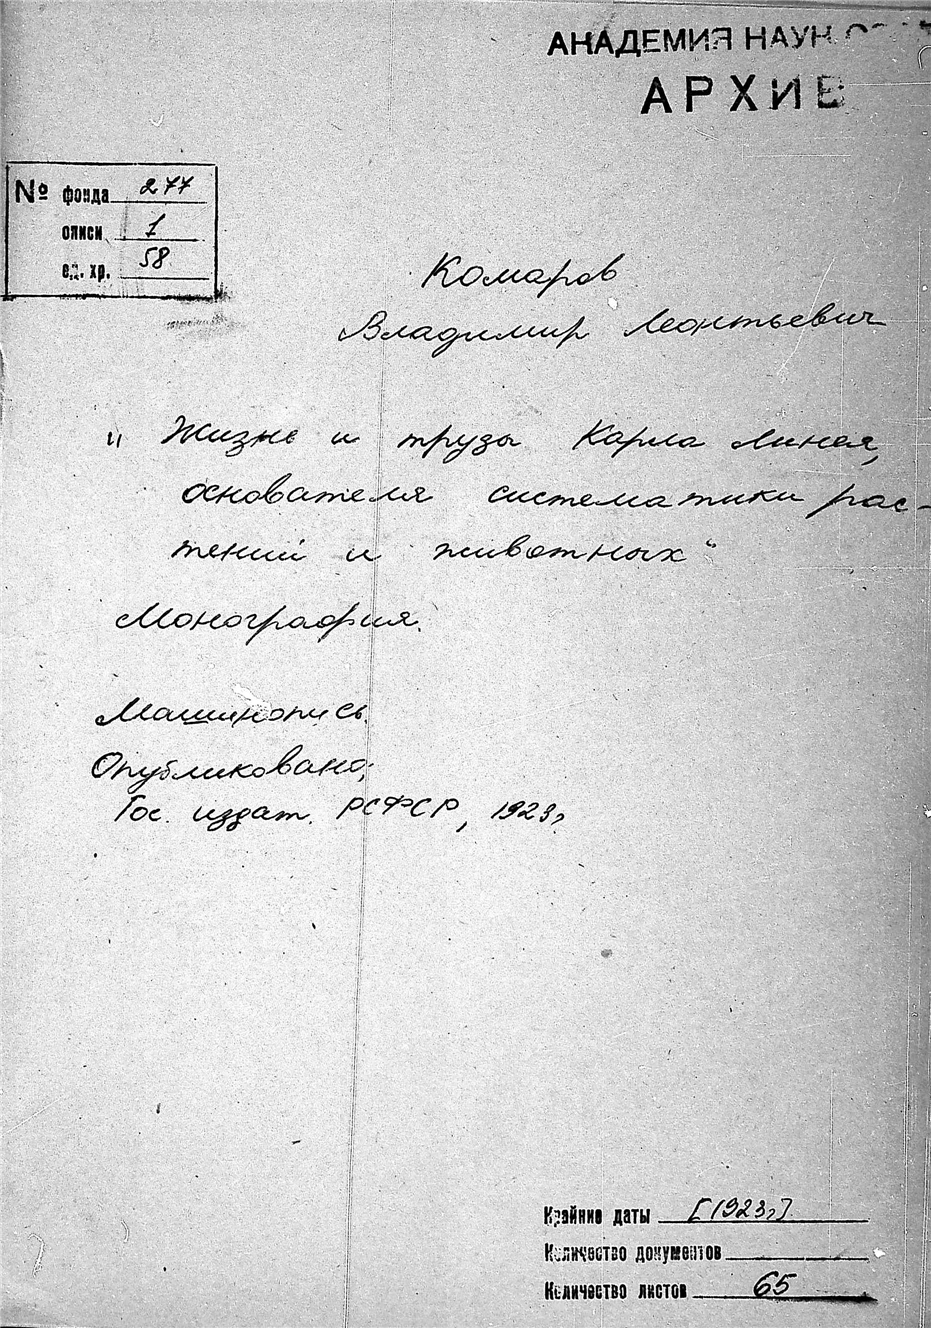 АКАДЕМИЯ НАУК СССР
АРХИВ
№ фонда 277
описи 1
ед. хр. 58
Комаров
Владимир Леонтьевич
„Жизнь и труды Карла Линея,
основателя систематики рас-
тений и животных“
Монография.
Машинопись.
Опубликовано:
Гос. издат. РСФСР, 1923г
Крайние даты [1923г]
Количество документов
Количество листов 65